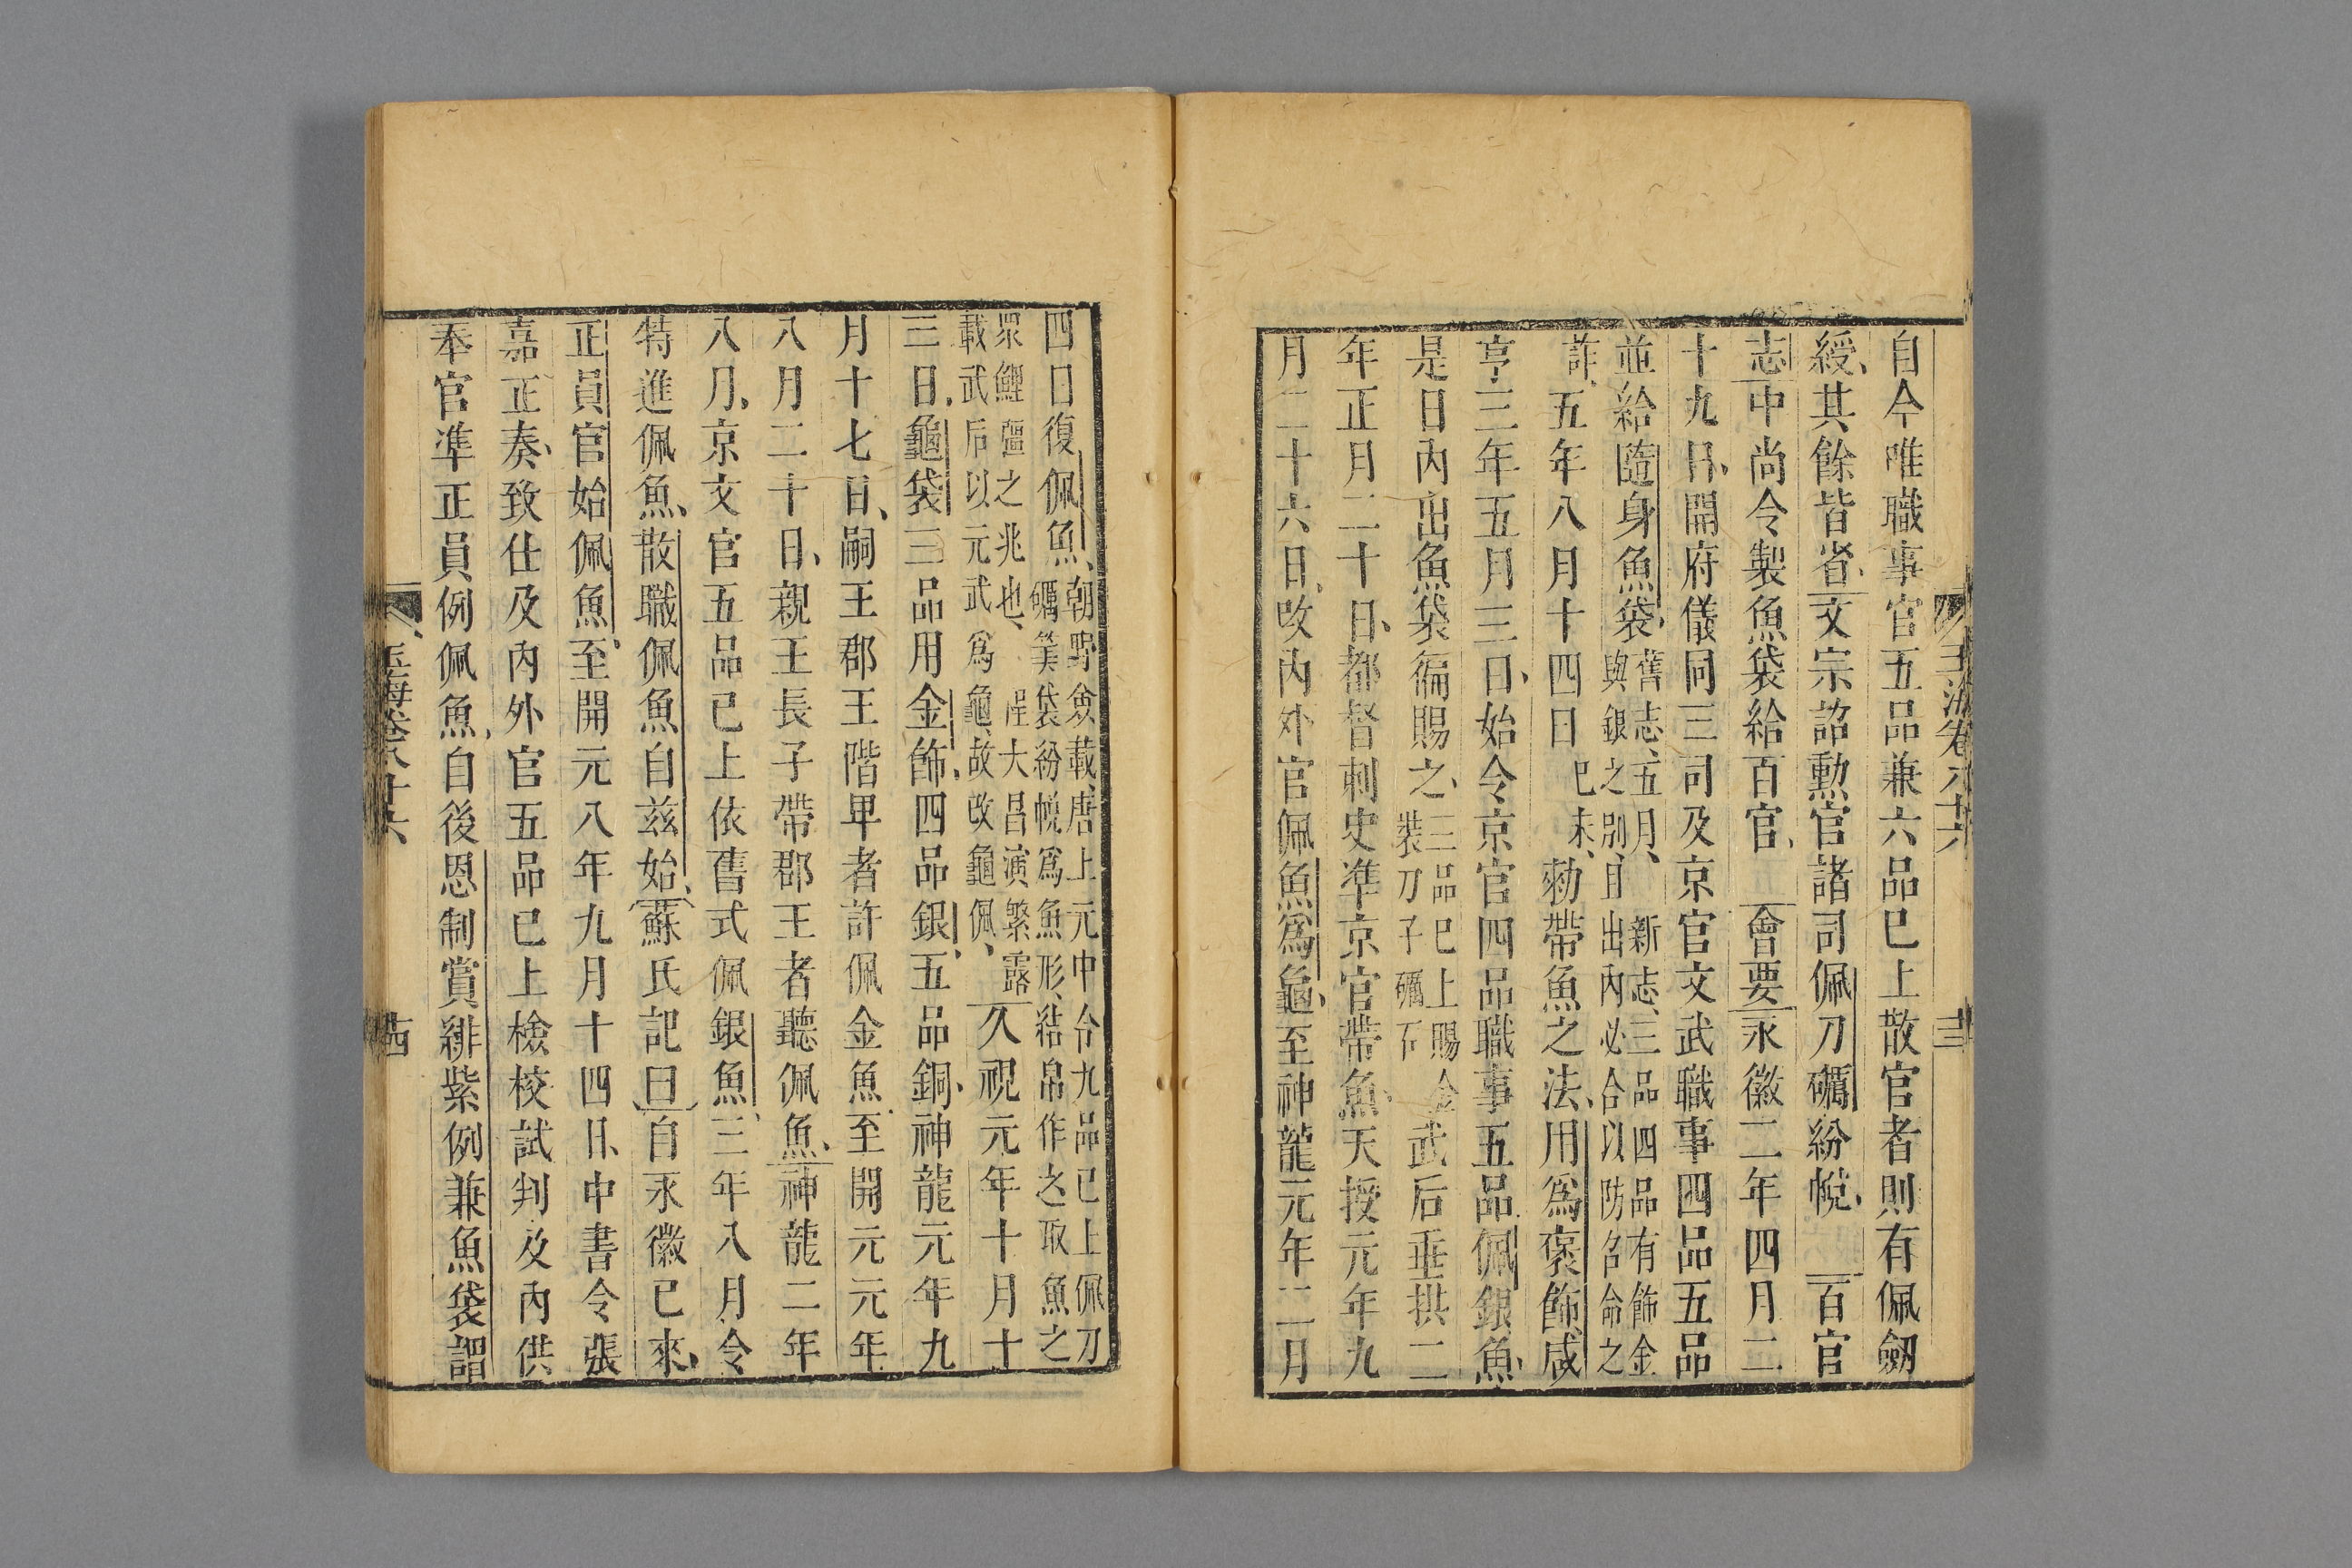 自今唯職事官五品兼六品已上散官者則有佩劒
綬其餘皆省文宗詔勲官諸司佩刀礪紛帨百官
志中尚令製魚袋給百官會要永徽二年四月二
十九日開府儀同三司及京官文武職事四品五品
並給隨身魚袋舊志五月新志三品四品有飾金
與銀之别自出內必合以防召命之
詐五年八月十四日已未勑帶魚之法用爲褒飾咸
亨三年五月三日始令京官四品職事五品佩銀魚
是日內出魚袋徧賜之三品已上賜金
裝刀子礪石武后垂拱二
年正月二十日都督刺史凖京官帶魚天授元年九
月二十六日改內外官佩魚爲龜至神龍元年二月
玉海卷八十六
四日復佩魚朝野僉載唐上元中令九品已上佩刀
礪筭袋紛帨爲魚形結帛作之取魚之
眾鯉彊之兆也程大昌演繁露
載武后以元武爲龜故改龜佩久視元年十月十
三日龜袋三品用金飾四品銀五品銅神龍元年九
月十七日嗣王郡王階甲者許佩金魚至開元元年
八月二十日親王長子帶郡王者聽佩魚神龍二年
八月京文官五品已上依舊式佩銀魚三年八月令
特進佩魚散職佩魚自兹始蘇氏記曰自永徽已來
正員官始佩魚至開元八年九月十四日中書令張
嘉正奏致仕及內外官五品已上檢校試判及內供
奉官凖正員例佩魚自後恩制賞緋紫例兼魚袋謂
玉海卷八十六